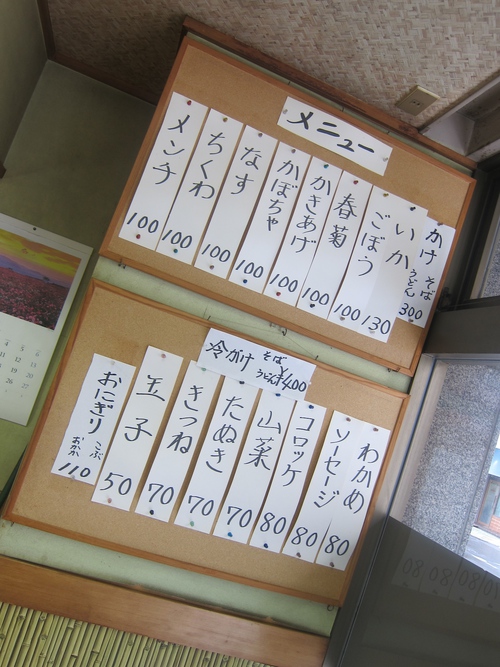 メニュー
かけ そば うどん 300
いか 130
ごぼう 100
春菊 100
かきあげ 100
かぼちゃ 100
なす 100
ちくわ 100
メンチ 100
冷がけ そば うどん ¥400
わかめ 80
ソーセージ 80
コロッケ 80
山菜 70
たぬき 70
きつね 70
玉子 50
おにぎり こぶ おかか 110